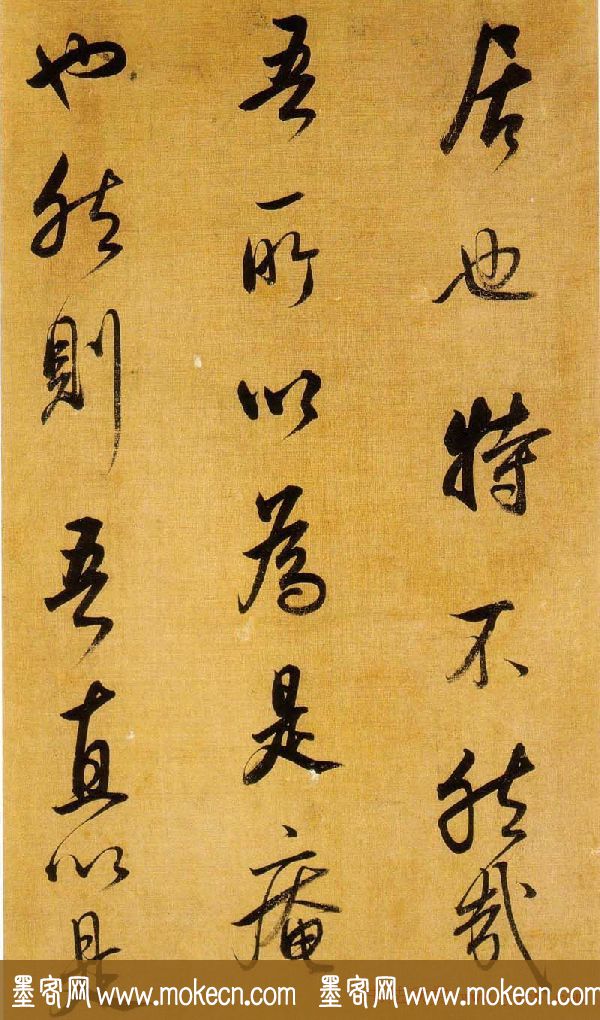 居也特不然哉
吾所以為是庵
也然則吾直以是
墨客网 www.mokecn.com 墨客网 www.mokecn.com